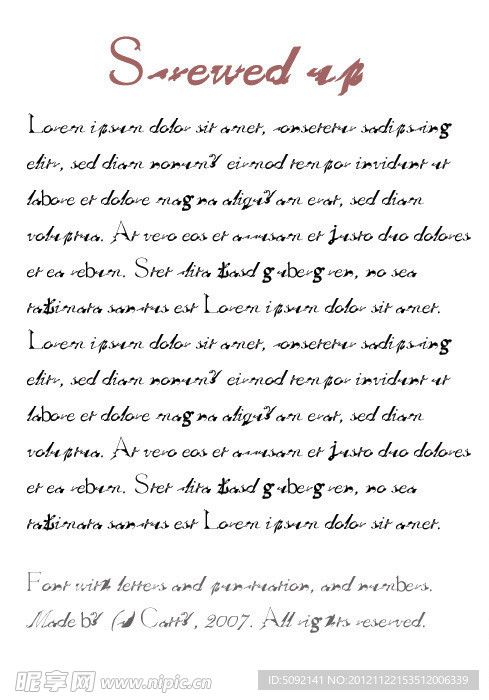 Screwed up
Lorem ipsum dolor sit amet, consetetur sadipscing
elitr, sed diam nonumy eirmod tempor invidunt ut
labore et dolore magna aliquyam erat, sed diam
voluptua. At vero eos et accusam et justo duo dolores
et ea rebum. Stet clita kasd gubergren, no sea
takimata sanctus est Lorem ipsum dolor sit amet.
Lorem ipsum dolor sit amet, consetetur sadipscing
elitr, sed diam nonumy eirmod tempor invidunt ut
labore et dolore magna aliquyam erat, sed diam
voluptua. At vero eos et accusam et justo duo dolores
et ea rebum. Stet clita kasd gubergren, no sea
takimata sanctus est Lorem ipsum dolor sit amet.
Font with letters and punctuation, and numbers.
Made by Catty, 2007. All rights reserved.
昵享网 www.nipic.cn
ID:5092141 NO:20121122153512006339